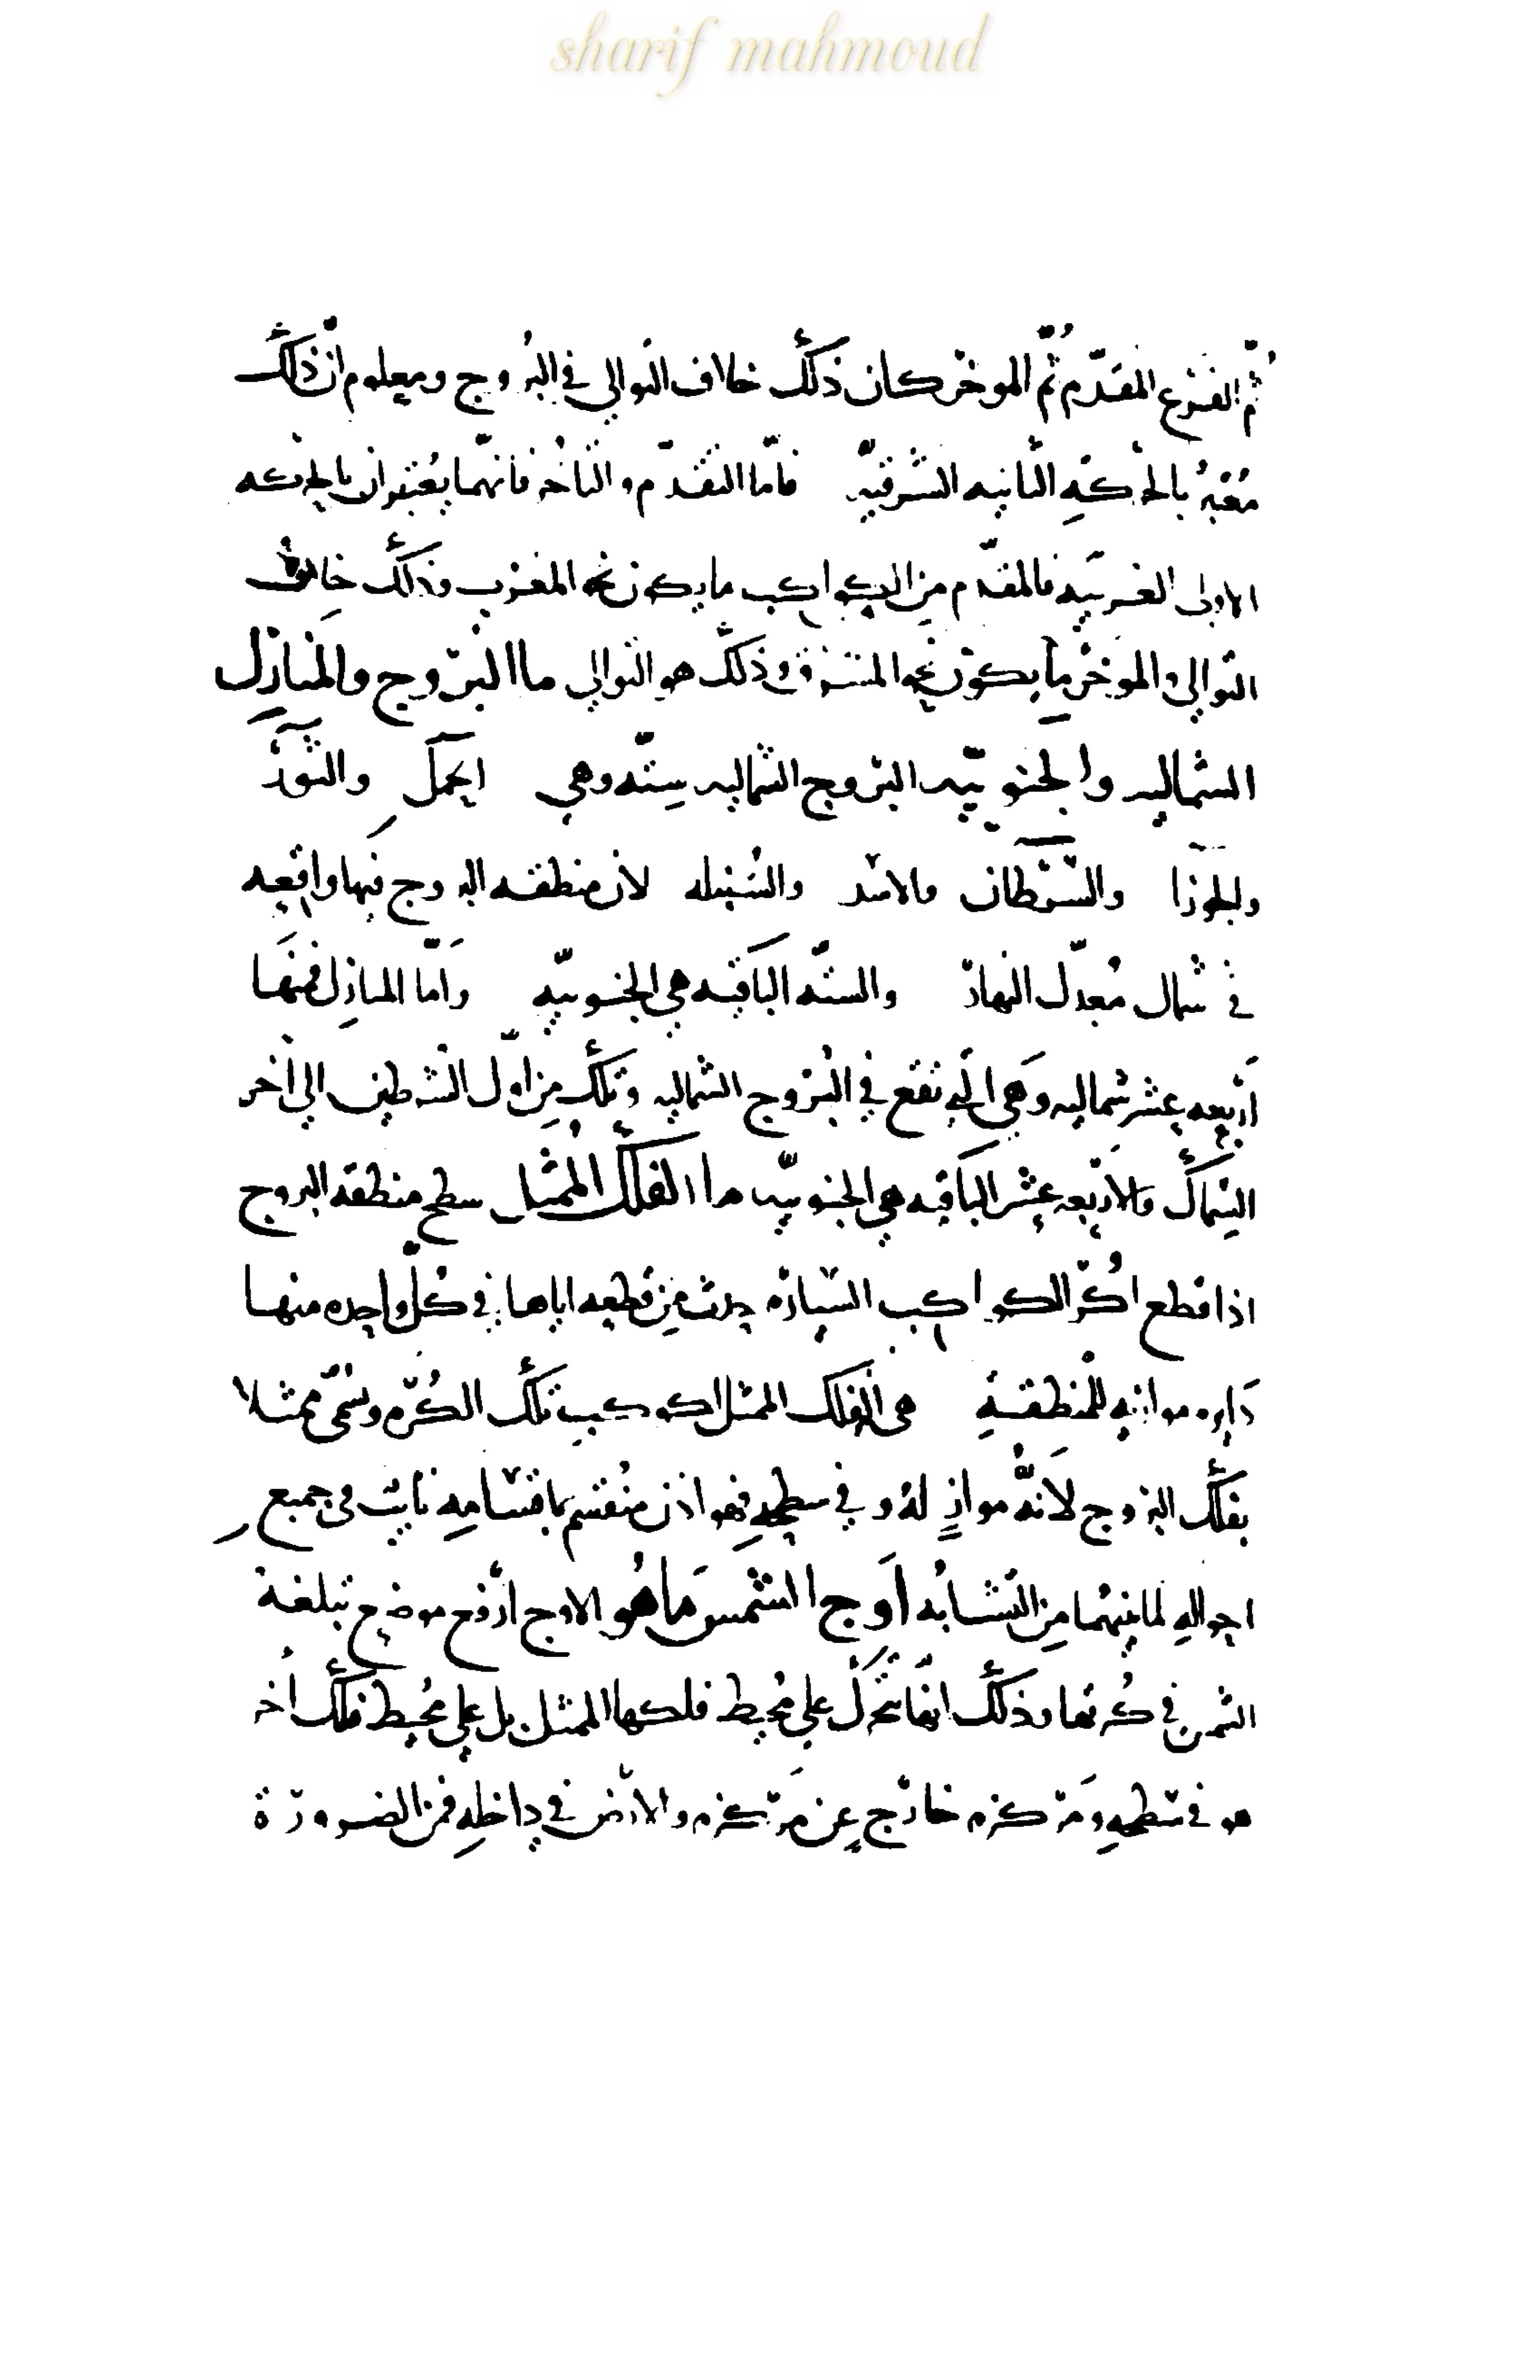 sharif mahmoud
ثمّ الفرغ المقدّم ثُمّ الموخّر كان ذلك خلاف التوالي في البُروج ومعلوم انّ ذلك
مُعتبرُ بالحركةِ الثانيه الشرقيّه فامّا التقدّم والتاخُر فانهّما يُعتبران بالحركه
الاولى الغربيّه فالمقدّم مِن الكواكب ما يكون نحو المغرب وذلك خلاف
التوالي والموخّر ما يكون نحو المشرق وذلك هو التوالي ما البروج والمنازل
الشماليه والجنوبيّه البروج الشماليه ستّه وهي الحمل والثور
والجوزا والسّرطان والاسد والسُنبله لان منطقه البروج فيها واقعه
في شمال مُعدّل النهار والستّه الباقيه هي الجنوبيّه وَامّا المنازل فمنهَا
اَربعه عشر شماليه وَهي التي تقع في البروج الشماليه وتلك مِن اوّل الشرطين الي اخر
السِماك والاربعه عشر الباقيه هي الجنوبيّه ما الفلك المُمثل سطح منطقه البروج
اذا قطع اُكَر الكواكب السّياره حدث مِن قطعه اياها في كلّ واحده منها
دَايره موازيه للمنطقةِ هي الفلك الممثل لكوكب تلك الكُره وسُمّي ممثلا
بفلك البروج لَانّه موازٍ لهُ وفي سطحهِ فهو اذن مُنقسم باقسَامِه ثابت في جميع
احوالهِ لما بينهُما مِن التشَابُه اَوج الشمس مَا هُو الاوج ارفع موضع تبلغهُ
الشمس في كُرتها وذلك انهّا تتحرّك علي مُحيط فلكها الممثل بل علي مُحيط فلك اخر
هو في سَطحهِ ومَركزه خارج عن مَركزه والارض في داخلهِ فمن الضرورة